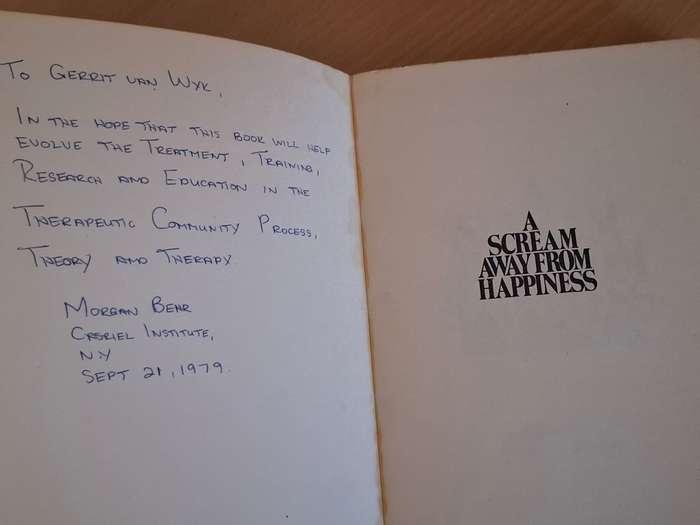 To Gerrit van Wyk,
In the hope that this book will help
evolve the Treatment, Training,
Research and Education in the
Therapeutic Community Process,
Theory and Therapy.
Morgan Bear
Casriel Institute,
NY
Sept 21, 1979.
A
SCREAM
AWAY FROM
HAPPINESS